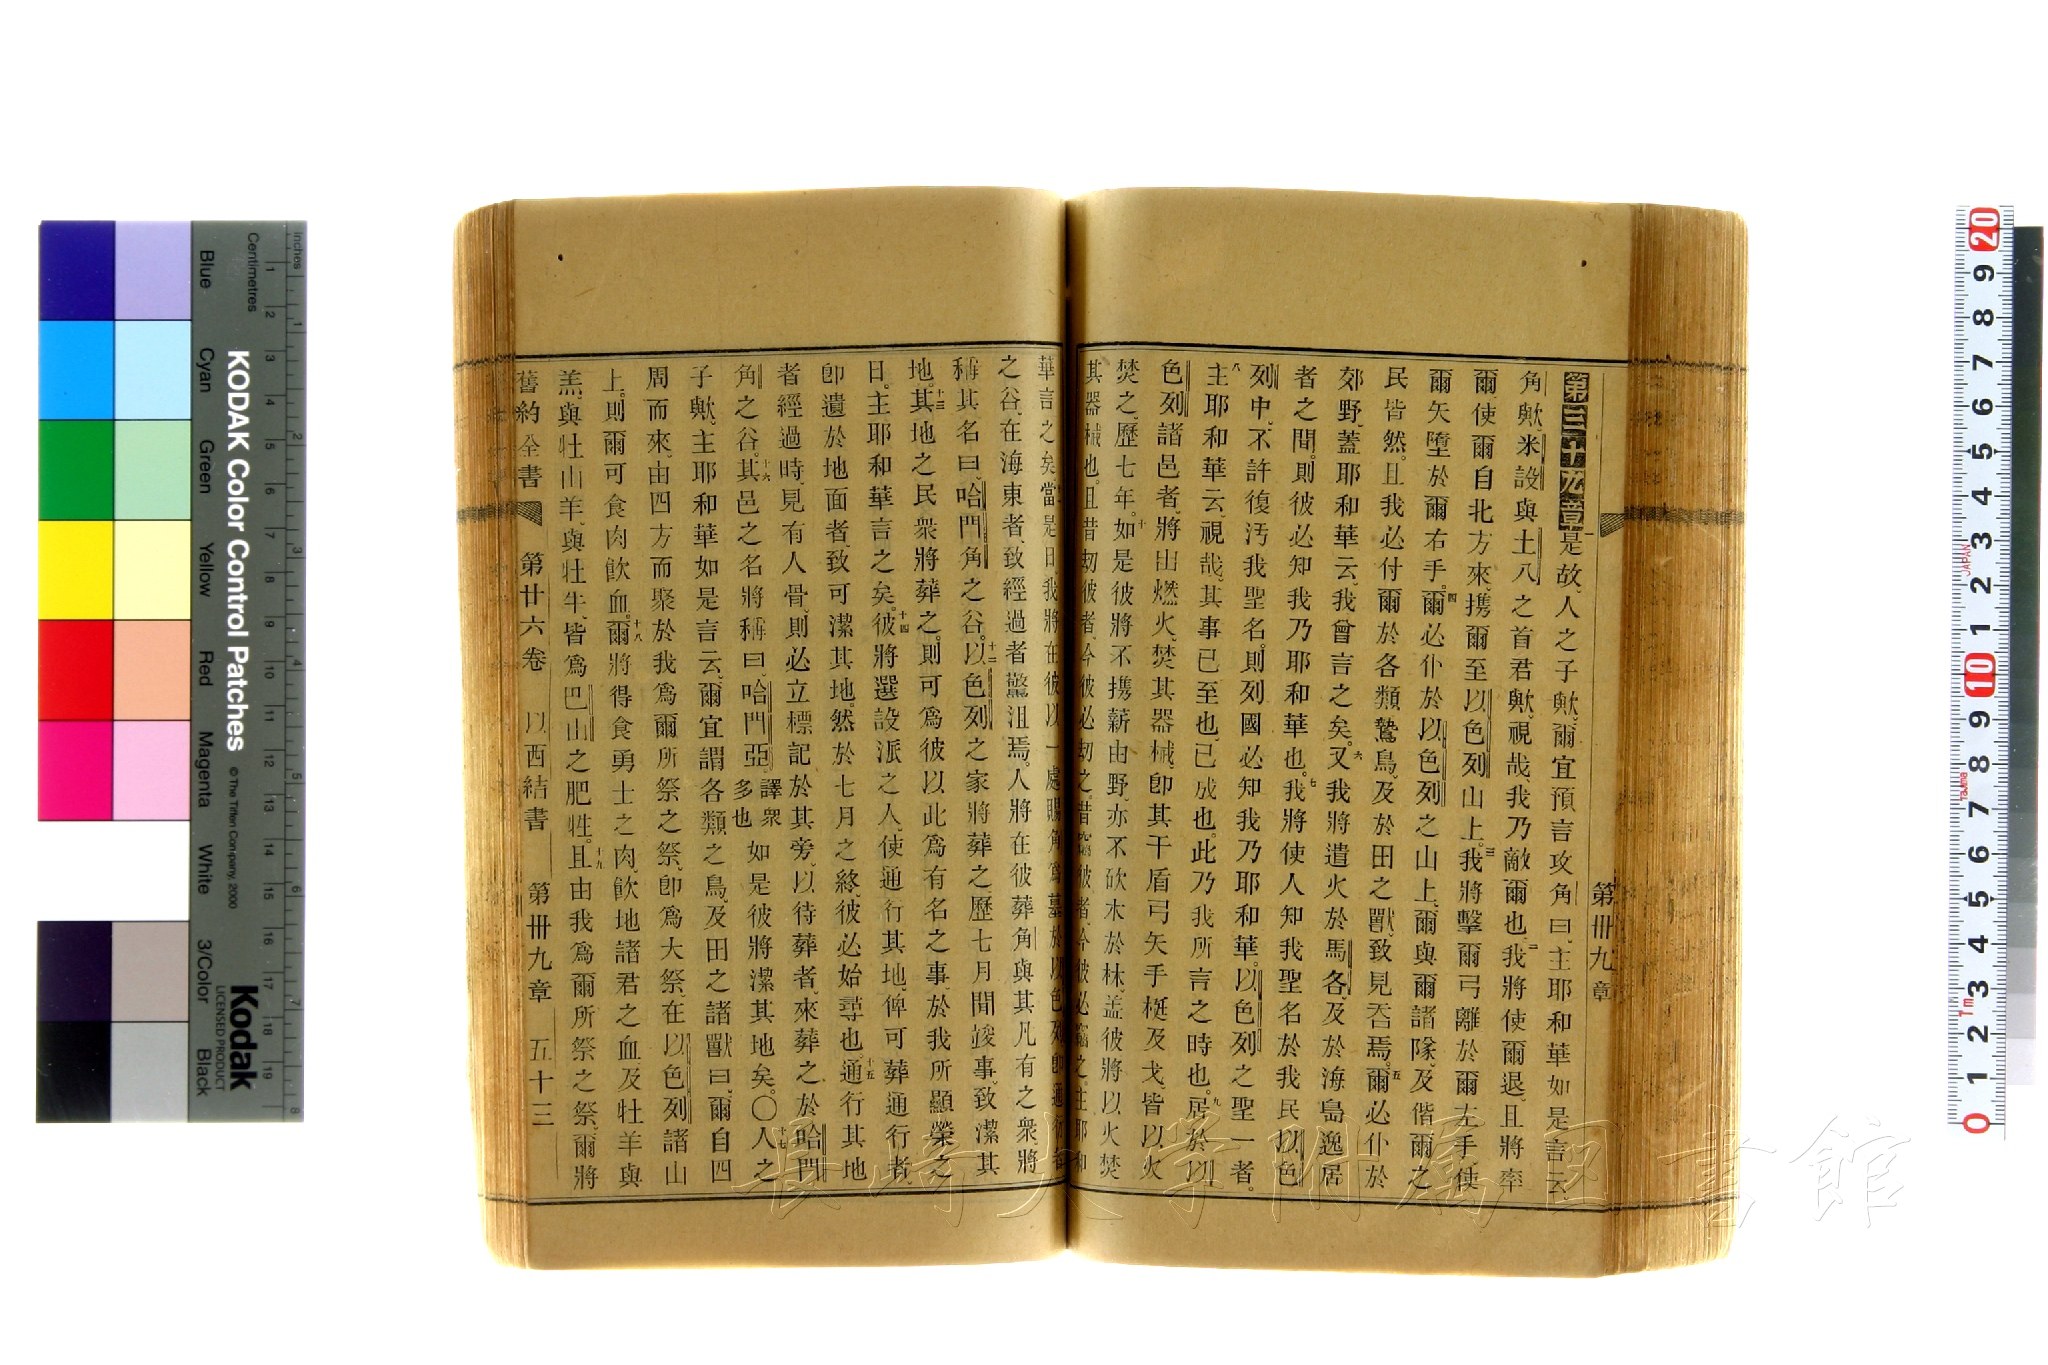 第卅九章
第三十九章一是故、人之子歟、爾宜預言攻角曰、主耶和華如是言云、
角歟、米設與土八之首君歟、視哉、我乃敵爾也、二我將使爾退、且將牽
爾使爾自北方來、携爾至以色列山上。三我將擊爾弓離於爾左手、使
爾矢墮於爾右手。四爾必仆於以色列之山上、爾與爾諸隊、及偕爾之
民皆然。且我必付爾於各類鷙鳥、及於田之獸、致見吞焉。五爾必仆於
郊野、蓋耶和華云、我曾言之矣。六又我將遣火於馬各、及於海島逸居
者之間。則彼必知我乃耶和華也。七我將使人知我聖名於我民以色
列中、不許復汚我聖名。則列國必知我乃耶和華。以色列之聖一者。
八主耶和華云、視哉、其事已至也、已成也。此乃我所言之時也。九居於以
色列諸邑者、將出燃火、焚其器械、卽其干盾弓矢手梃及戈、皆以火
焚之、歷七年。十如是彼將不携薪由野、亦不砍木於林、蓋彼將以火焚
其器械也。且昔刼彼者、今彼必刼之、昔竊彼者、今彼必竊之。主耶和
華言之矣。當是日、我將在彼以一處賜角爲墓於以色列、卽通行者
之谷、在海東者、致經過者驚沮焉。人將在彼葬角與其凡有之衆、將
稱其名曰、哈門角之谷。十二以色列之家將葬之歷七月間竣事、致潔其
地。十三其地之民衆將葬之。則可爲彼以此爲有名之事、於我所顯榮之
日。主耶和華言之矣。十四彼將選設派之人、使通行其地、俾可葬通行者
卽遺於地面者、致可潔其地。然於七月之終、彼必始尋也。十五通行其地
者經過時、見有人骨、則必立標記於其旁、以待葬者、來葬之於哈門
角之谷。十六其邑之名將稱曰、哈門亞。譯衆多也 如是彼將潔其地矣。〇十七人之
子歟、主耶和華如是言云、爾宜謂各類之鳥、及田之諸獸曰、爾自四
周而來、由四方而聚於我爲爾所祭之祭、卽爲大祭、在以色列諸山
上。則爾可食肉飮血。十八爾將得食勇士之肉、飮地諸君之血及牡羊與
羔、與牡山羊、與牡牛、皆爲巴山之肥牲。十九且由我爲爾所祭之祭、爾將
舊約全書 第廿六卷 以西結書 第卅九章 五十三
KODAK Color Control Patches
© The Tiffen Company, 2000
Kodak
LICENSED PRODUCT
Inches
Centimetres
Blue Cyan Green Yellow Red Magenta White 3/Color Black
長崎大学附属図書館